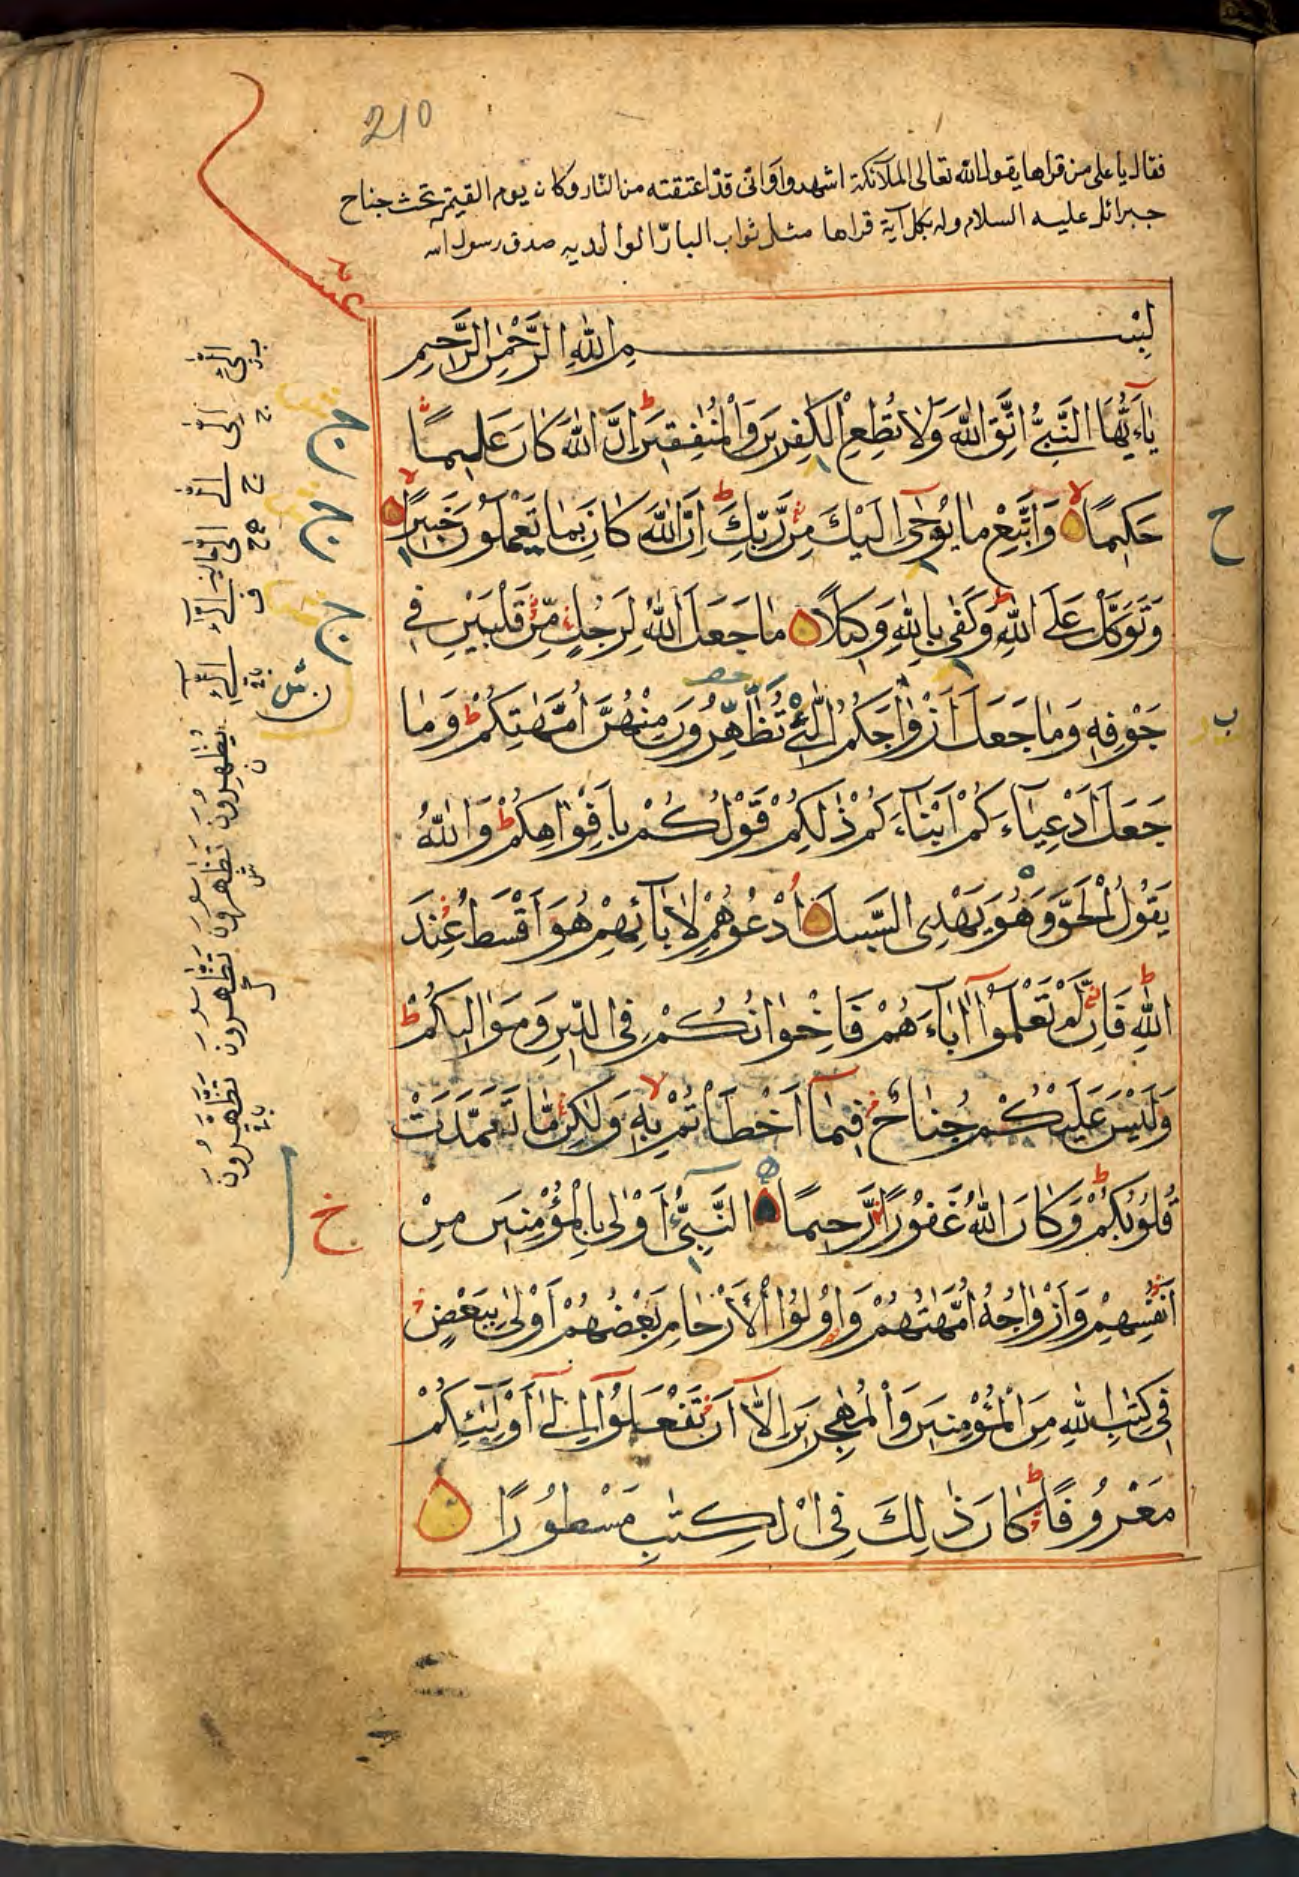 210
فقال يا على من قراها يقول الله تعالى الملآئكة اشهدوا وانى قد اعتقته من النار وكان يوم القيمة تحت جناح
جبرائل عليه السلام وله بكل آية قراها مثل ثواب البارّ الوالديه صدق رسول الله
عشر
بِسْمِ اللهِ الرَّحْمٰنِ الرَّحِيمِ
يٰاَءَيُّهَا النَّبِىُّ اتَّقِ اللهَ وَلَا تُطِعِ الْكٰفِرِينَ وَالْمُنٰفِقِينَ ط اِنَّ اللهَ كَانَ عَلِيمًا
حَكِيمًا لا وَاتَّبِعْ مَا يُوحٰى اِلَيْكَ مِنْ رَّبِّكَ ط اِنَّ اللهَ كَانَ بِمَا تَعْمَلُونَ خَبِيرًا لا
وَتَوَكَّلْ عَلَى اللهِ ط وَكَفٰى بِاللهِ وَكِيلًا مَا جَعَلَ اللهُ لِرَجُلٍ مِّنْ قَلْبَيْنِ فِى
جَوْفِهِ وَمَا جَعَلَ اَزْوَاجَكُمُ الّٰۤئِى تُظٰهِرُونَ مِنْهُنَّ اُمَّهٰتِكُمْ ط وَمَا
جَعَلَ اَدْعِيَآءَكُمْ اَبْنَآءَكُمْ ذٰلِكُمْ قَوْلُكُمْ بِاَفْوَاهِكُمْ ط وَاللهُ
يَقُولُ الْحَقَّ وَهُوَ يَهْدِى السَّبِيلَ اُدْعُوهُمْ لِاٰبَآئِهِمْ هُوَ اَقْسَطُ عِنْدَ
اللهِ ط فَاِنْ لَّمْ تَعْلَمُوۤا اٰبَآءَهُمْ فَاِخْوَانُكُمْ فِى الدِّينِ وَمَوَالِيكُمْ ط
وَلَيْسَ عَلَيْكُمْ جُنَاحٌ فِيمَآ اَخْطَاْتُمْ بِهِ لا وَلٰكِنْ مَّا تَعَمَّدَتْ
قُلُوبُكُمْ ط وَكَانَ اللهُ غَفُورًا رَّحِيمًا النَّبِىُّ اَوْلٰى بِالْمُؤْمِنِينَ مِنْ
اَنْفُسِهِمْ وَاَزْوَاجُهُ اُمَّهٰتُهُمْ وَاُولُوا الْاَرْحَامِ بَعْضُهُمْ اَوْلٰى بِبَعْضٍ
فِى كِتٰبِ اللهِ مِنَ الْمُؤْمِنِينَ وَالْمُهٰجِرِينَ اِلَّآ اَنْ تَفْعَلُوۤا اِلٰۤى اَوْلِيٰٓئِكُمْ
مَعْرُوفًا ط كَانَ ذٰلِكَ فِى الْكِتٰبِ مَسْطُورًا
ح
خ
يُظٰهِرُونَ تَظٰهَرُونَ تَظَّهَّرُونَ